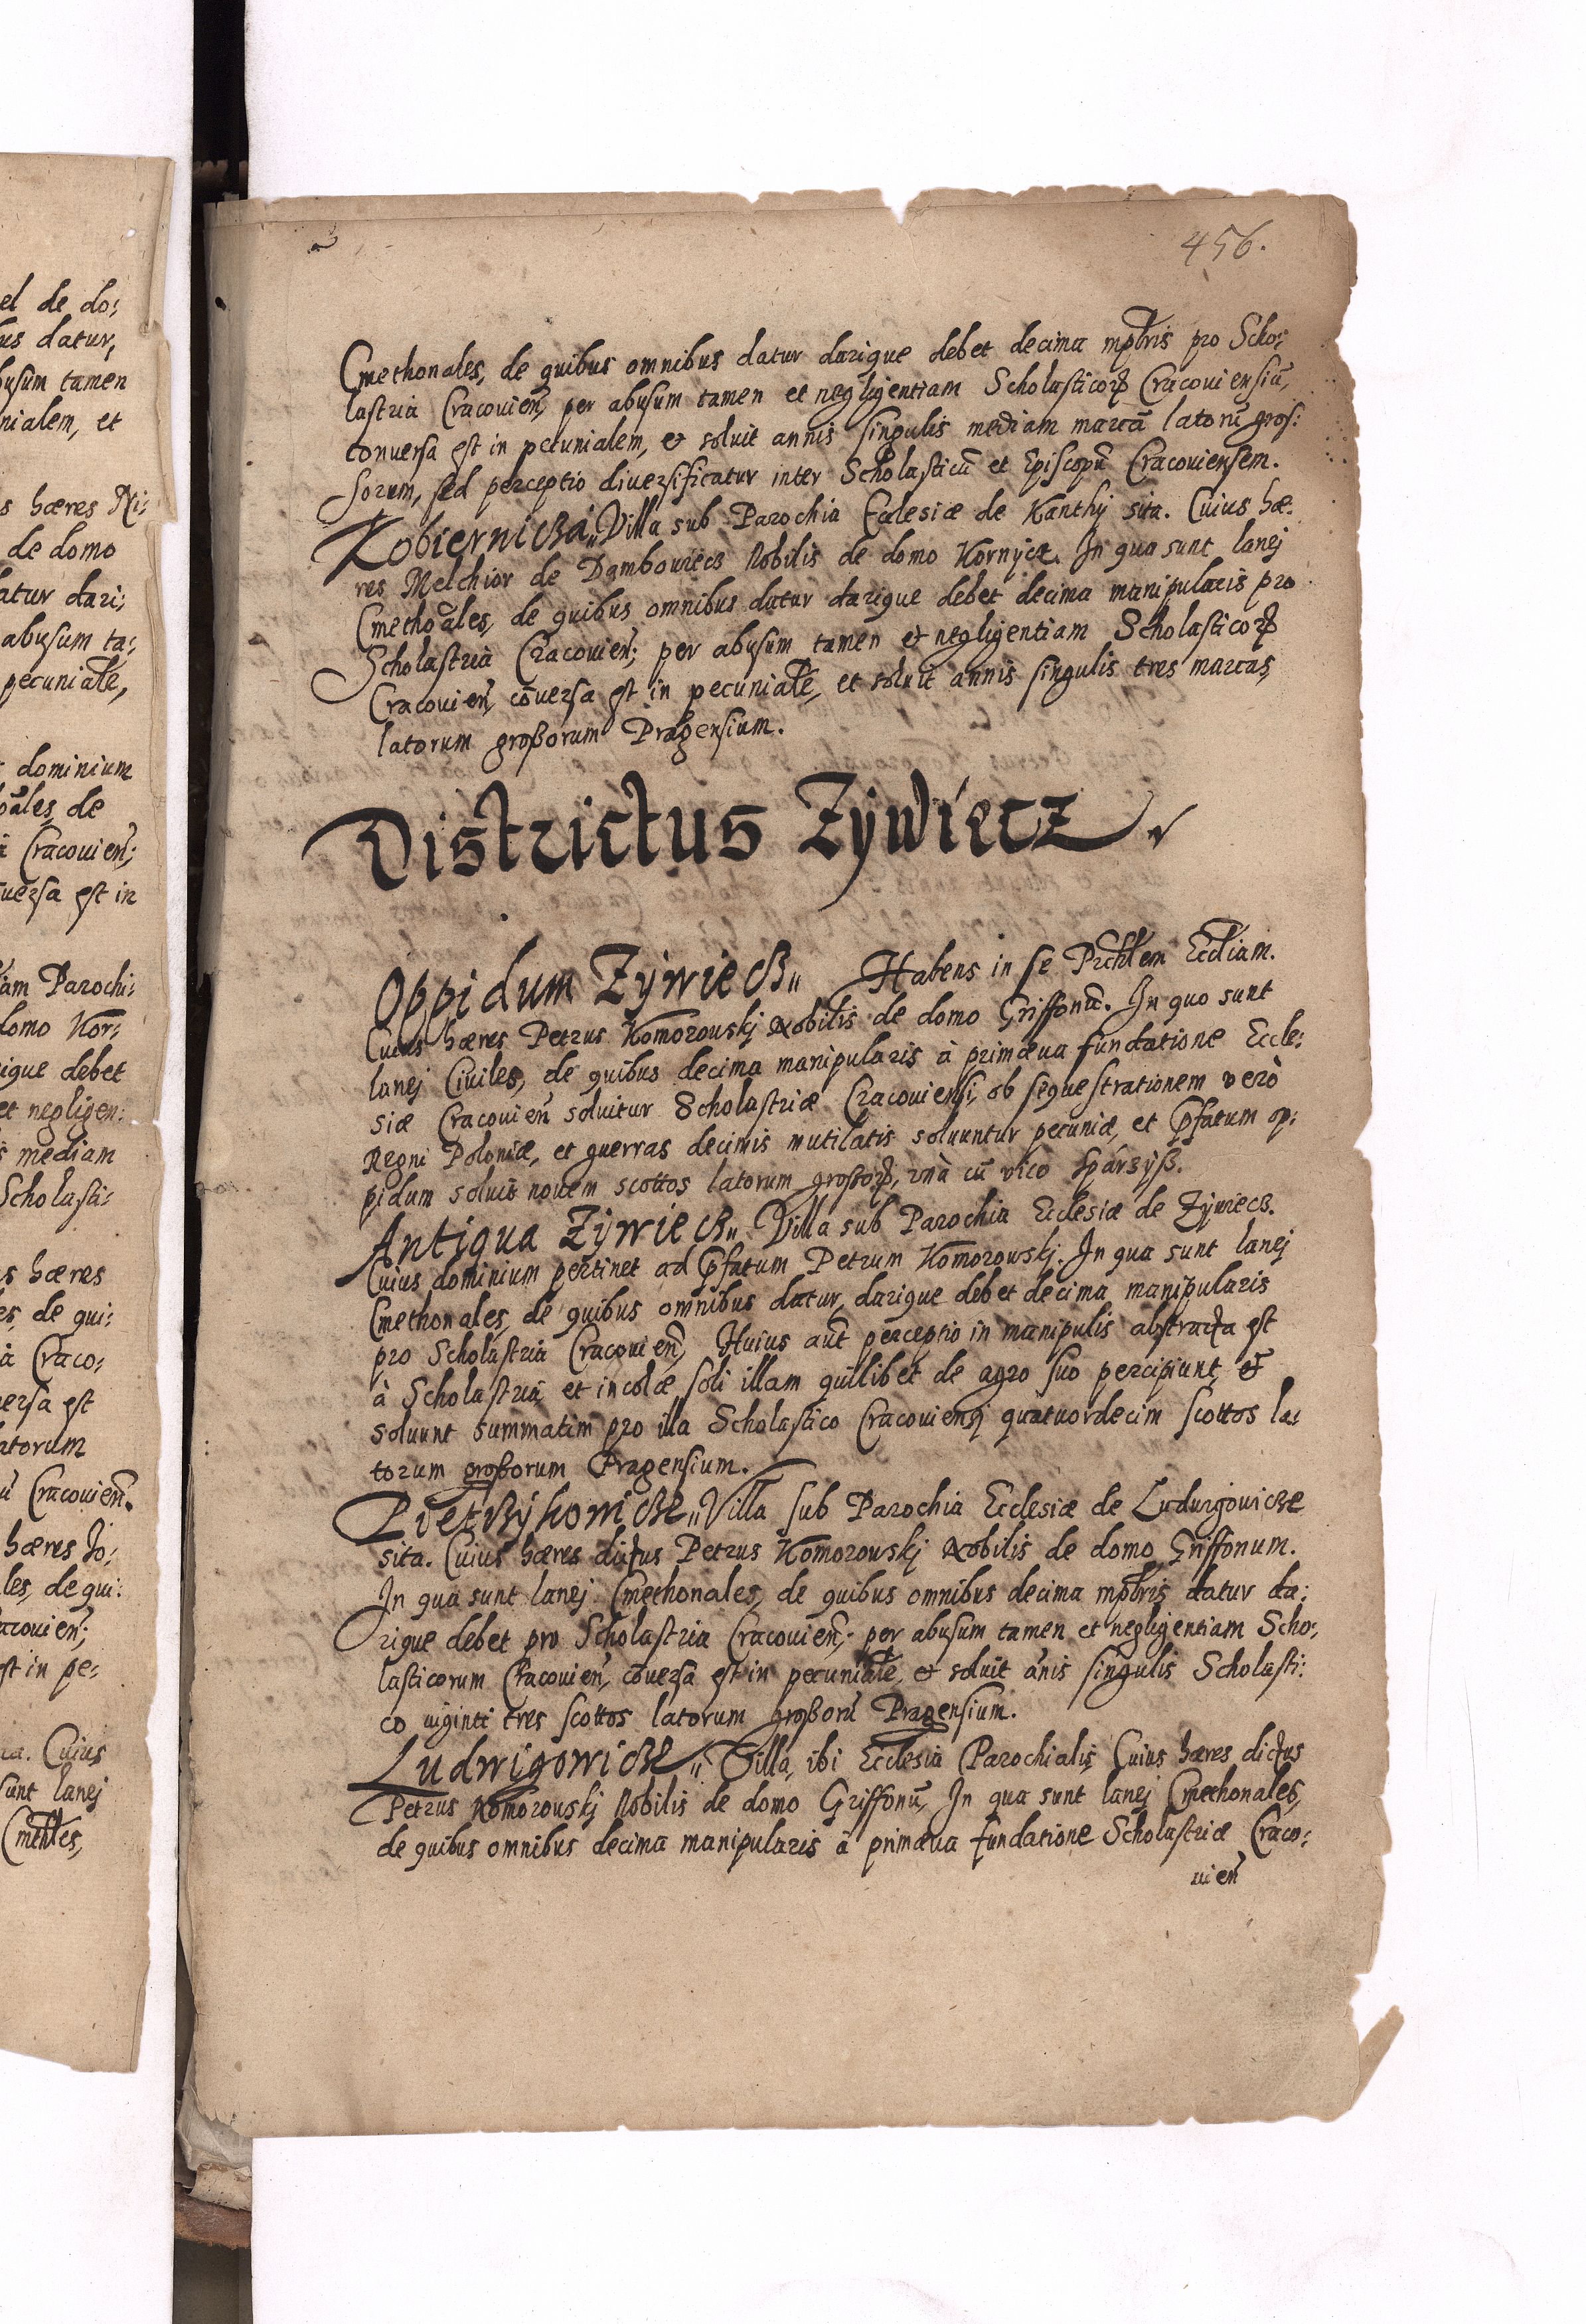 el de do:
us datur,
busum tamen
nialem, et
s hæres Ni:
de domo
atur dari:
abusum ta:
pecuniale,
dominium
oales, de
Cracouien:
uersa est in
am Parochi:
domo Kor:
igue debet
et negligen:
s mediam
Scholasti:
s hæres
es, de qui:
a Craco:
ersa est
atorum
Cracouien.
hæres Jo:
les, de qui:
acouien;
st in pe:
Cuius
sunt lanej
Cmethles,
456.
Cmethonales, de quibus omnibus datur darique debet decima mplaris pro Scho:
lastria Cracouien, per abusum tamen et negligentiam Scholasticorꝝ Cracouiensiū,
conuersa est in pecunialem, et soluit annis singulis mediam marcā latorū gros:
sorum, sed perceptio diuersificatur inter Scholasticū et Episcopū Cracouiensem.
Kobiernicza„ Villa sub Parochia Ecclesiæ de Kanthij sita. Cuius hæ:
res Melchior de Dambowiecz Nobilis de domo Kornycz. In qua sunt lanej
Cmethoāles, de quibus omnibus datur darique debet decima manipularis pro
Scholastria Cracouien; per abusum tamen et negligentiam Scholasticorꝝ
Cracouien, cōuersa est in pecuniale, et soluit annis singulis tres marcas,
latorum großorum Pragensium.
Districtus Zywiecz
Oppidum Zywiecz„ Habens in se Prchlem Eccliam.
Cuius hæres Petrus Komorouskj Nobilis de domo Griffonū. In quo sunt
lanej Ciuiles, de quibus decima manipularis à primæua fundatione Eccle:
siæ Cracouien soluitur Scholastriæ Cracouiensi, ob sequestrationem verò
Regni Poloniæ, et guerras decimis mutilatis soluuntur pecuniæ, et ꝑfatum op:
pidum soluit nouem scottos latorum großorꝝ, unà cū vico Sparsyß.
Antiqua Zywiecz„ Villa sub Parochia Ecclesiæ de Zywiecz.
Cuius dominium pertinet ad ꝑfatum Petrum Komorowskj. In qua sunt lanej
Cmethonales, de quibus omnibus datur, darique debet decima manipularis
pro Scholastria Cracouien, Huius aut perceptio in manipulis abstracta est
à Scholastria, et incolæ soli illam quilibet de agro suo percipiunt, et
soluunt summatim pro illa Scholastico Cracouiensj quatuordecim scottos la:
torum großorum Pragensium.
Pietrzykowicze„ Villa sub Parochia Ecclesiæ de Ludwigowicze
sita. Cuius hæres dictus Petrus Komorouskj Nobilis de domo Griffonum.
In qua sunt lanej Cmethonales, de quibus omnibus decima mplris datur da:
rique debet pro Scholastria Cracouien; per abusum tamen et negligentiam Scho:
lasticorum Cracouien, cōuersa est in pecuniale, et soluit ānis singulis Scholasti:
co uiginti tres scottos latorum großorū Pragensium.
Ludwigowicze„ Villa, ibi Ecclesia Parochialis, Cuius hæres dictus
Petrus Komorouskj Nobilis de domo Griffonū, In qua sunt lanej Cmethonales,
de quibus omnibus decima manipularis à primæua fundatione Scholastriæ Craco:
uien